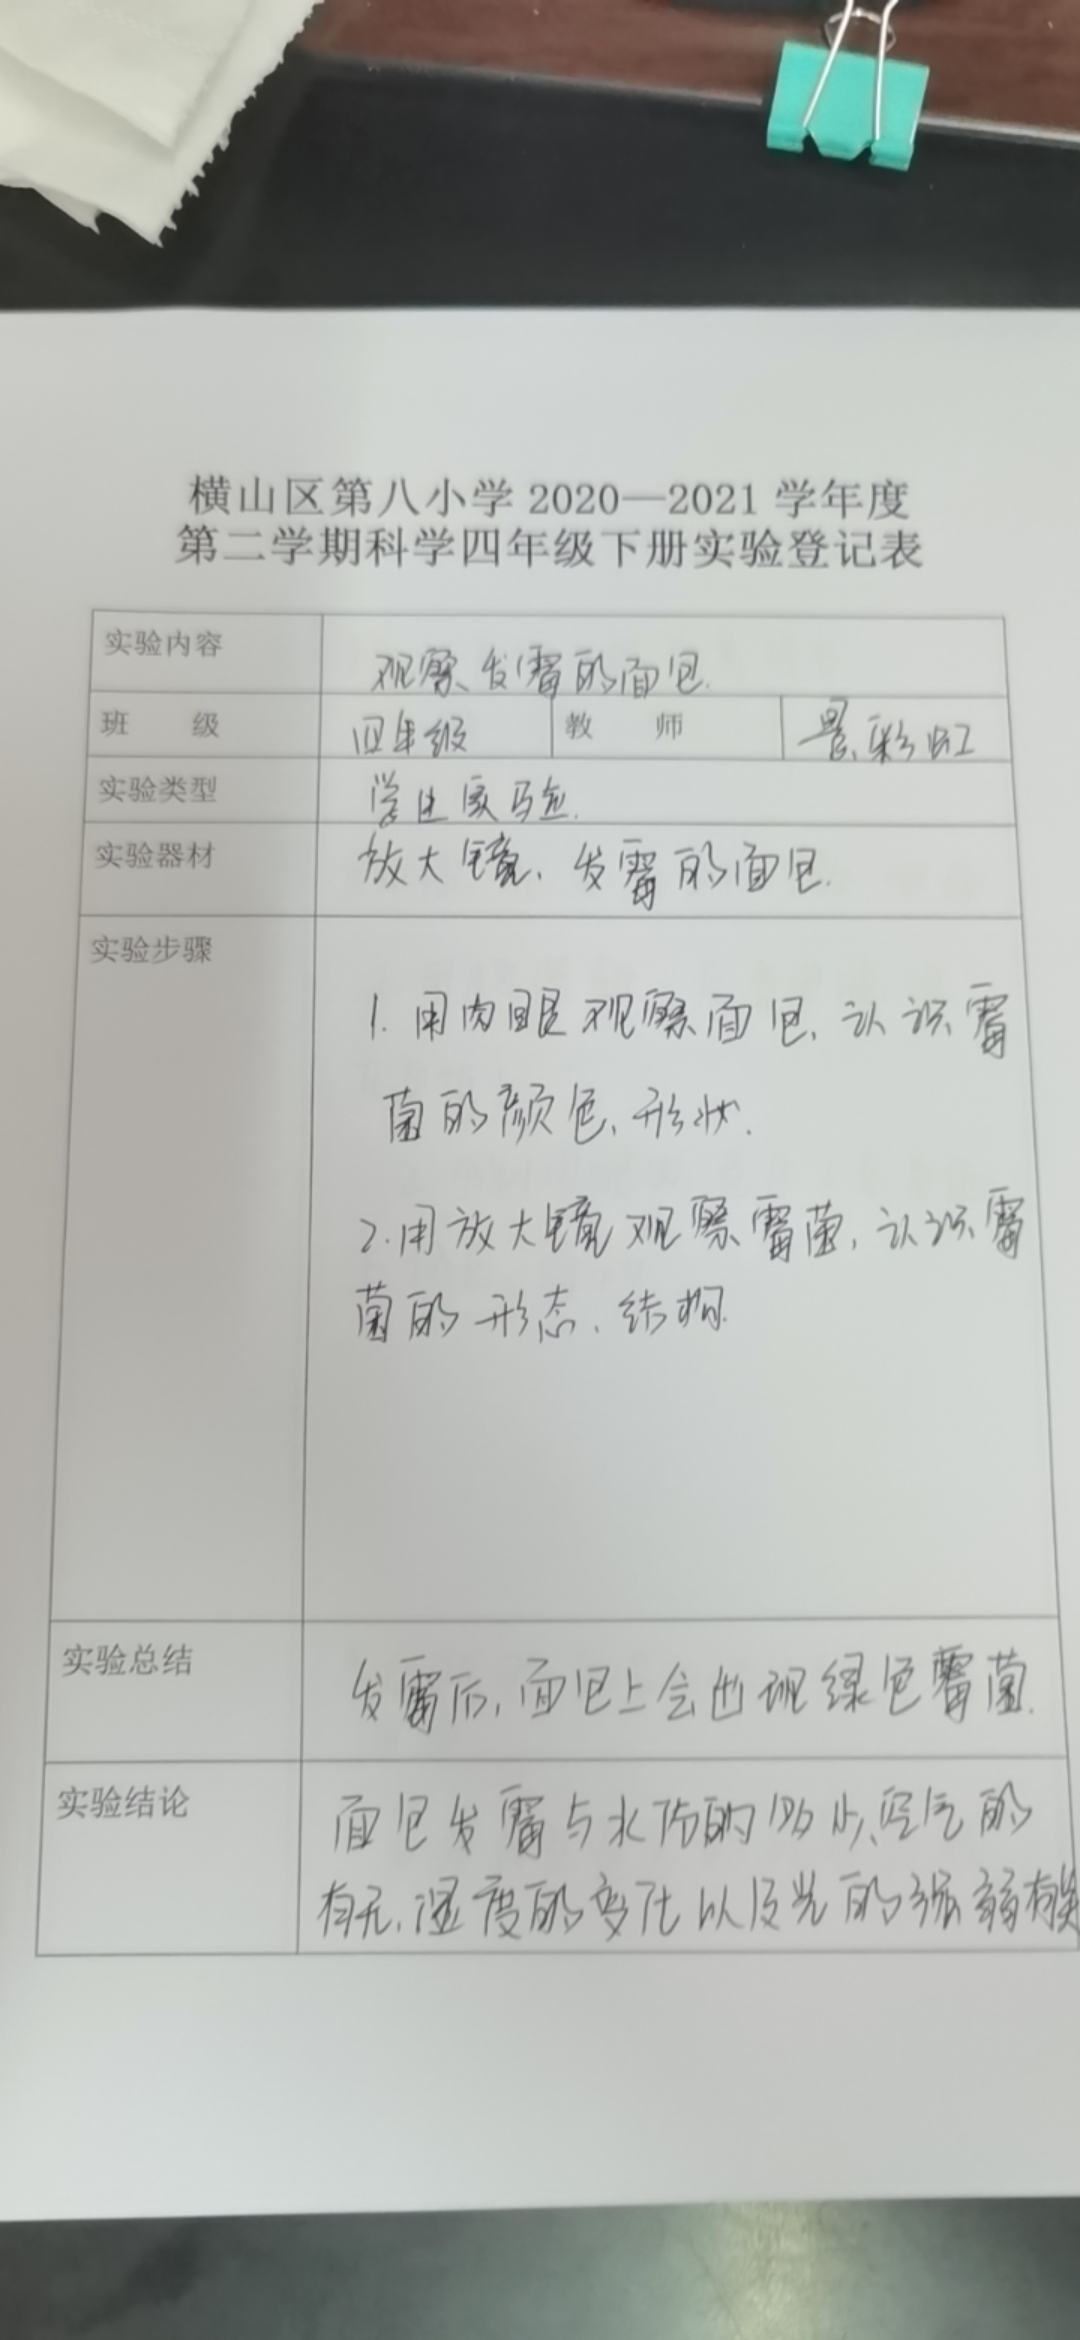 横山区第八小学 2020—2021 学年度
第二学期科学四年级下册实验登记表
实验内容 观察发霉的面包.
班 级 四年级 教 师 景彩虹
实验类型 学生实验.
实验器材 放大镜、发霉的面包.
实验步骤
1. 用肉眼观察面包、认识霉
菌的颜色、形状.
2. 用放大镜观察霉菌,认识霉
菌的形态、结构.
实验总结 发霉后,面包上会出现绿色霉菌.
实验结论 面包发霉与水份的多少、空气的
有无、湿度的变化以及光的强弱有关